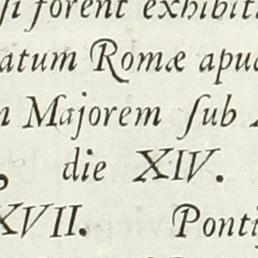 ſi forent exhibit
atum Romæ apu
n Majorem ſub
die XIV.
XVII. Ponti